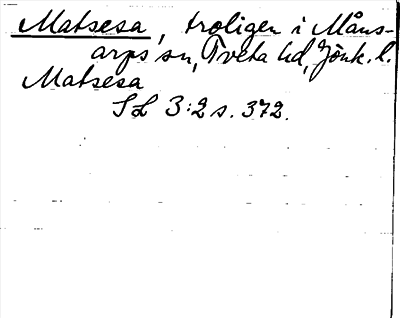 Matsesa, troligen i Måns-
arps sn, Tveta hd, Jönk. l.
Matsesa
SL 3:2 s. 372.